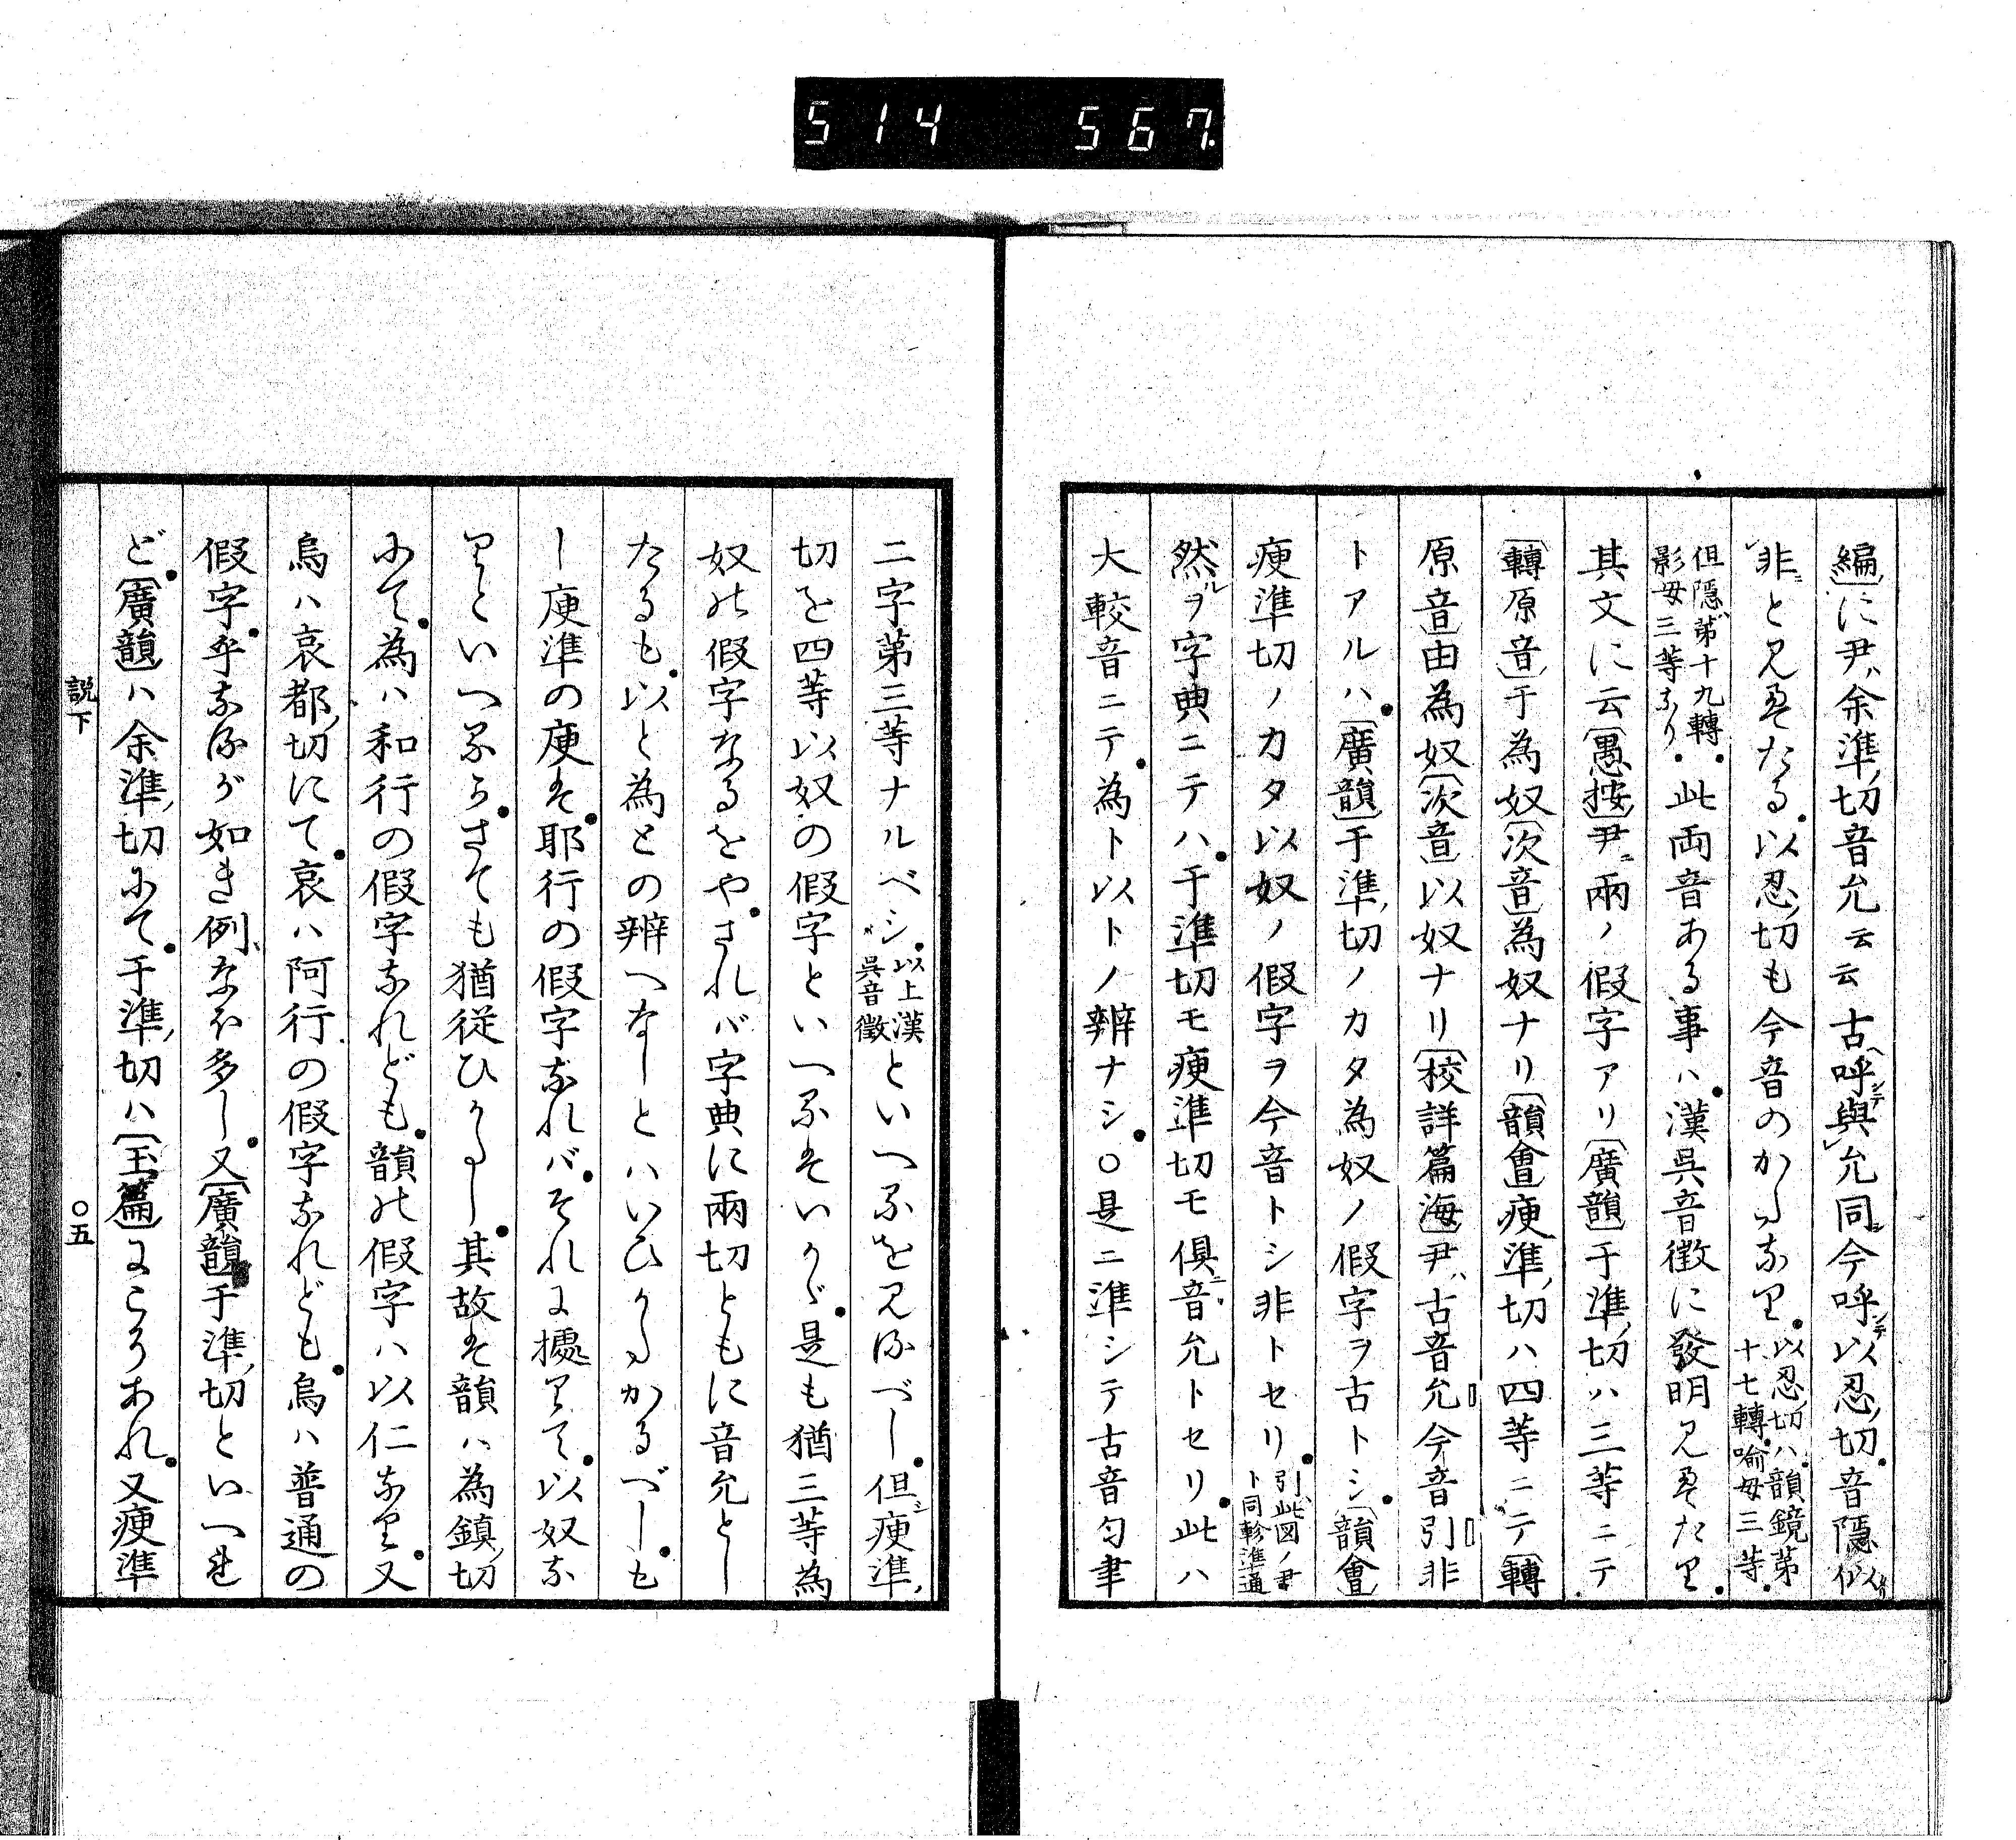 514 567.
編に尹ハ余準切音允云云古呼シテ與レ允同シ今呼シテ以忍切音隱似タリ
非ニと見えたる以忍切も今音のかたなり以忍切ハ韻鏡第十七轉喩母三等
但隱ハ第十九轉影母三等なり此両音ある事ハ漢呉音徴に發明見えたり
其文に云愚按尹ニ兩ノ假字アリ廣韻于準切ハ三等ニテ
轉原音于為奴次音為奴ナリ韻會痩準切ハ四等ニテ轉
原音由為奴次音以奴ナリ校詳篇海尹ハ古音允今音引非
トアルハ廣韻于準切ノカタ為奴ノ假字ヲ古トシ韻會
痩準切ノカタ以奴ノ假字ヲ今音トシ非トセリ引ハ此図ノ書ト同軫準通
然ルヲ字典ニテハ于準切モ痩準切モ倶ニ音允トセリ此ハ
大較音ニテ為ト以トノ辨ナシ○是ニ準シテ古音匀聿
二字第三等ナルベシ以上漢呉音徴といへるを見るべし但シ痩準
切を四等以奴の假字といへるはいかゞ是も猶三等為
奴の假字なるをやされバ字典に兩切ともに音允とし
たるも以と為との辨へなしとハいひかたかるべしも
し庾準の庾は耶行の假字なれバそれに據りて以奴な
りといへるかさても猶従ひかたし其故は韻ハ為鎮切
にて為ハ和行の假字なれども韻の假字ハ以仁なり又
烏ハ哀都切にて哀ハ阿行の假字なれども烏ハ普通の
假字乎なるが如き例なほ多し又廣韻于準切といへれ
ど廣韻ハ余準切にて于準切ハ玉篇にこそあれ又痩準
説下 ○五